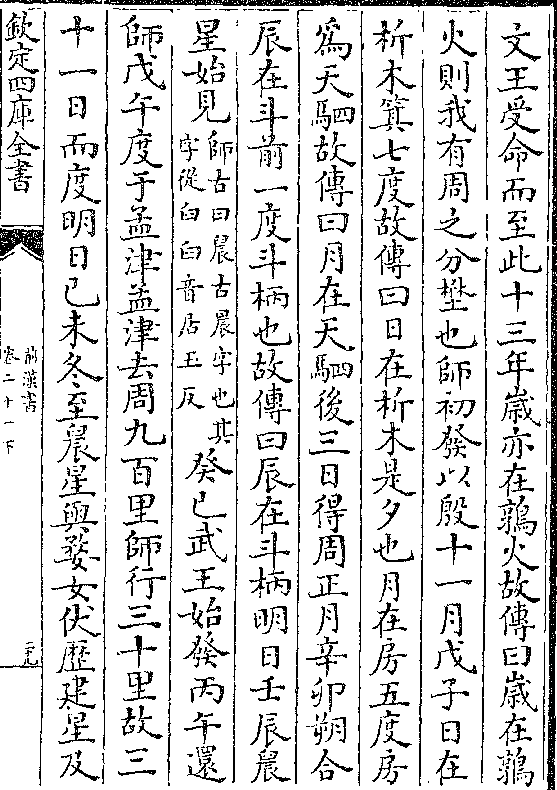 文王受命而至此十三年歲亦在鶉火故傳曰歲在鶉
火則我有周之分壄也師初發以殷十一月戊子日在
析木箕七度故傳曰日在析木是夕也月在房五度房
爲天駟故傳曰月在天駟後三日得周正月辛卯朔合
辰在斗前一度斗柄也故傳曰辰在斗柄明日壬辰晨
星始見師古曰晨古晨字也其字從臼臼音居玉反癸巳武王始發丙午還
師戊午度于孟津孟津去周九百里師行三十里故三
十一日而度明日己未冬至晨星與婺女伏歷建星及
欽定四庫全書
前漢書
卷二十一下
二九